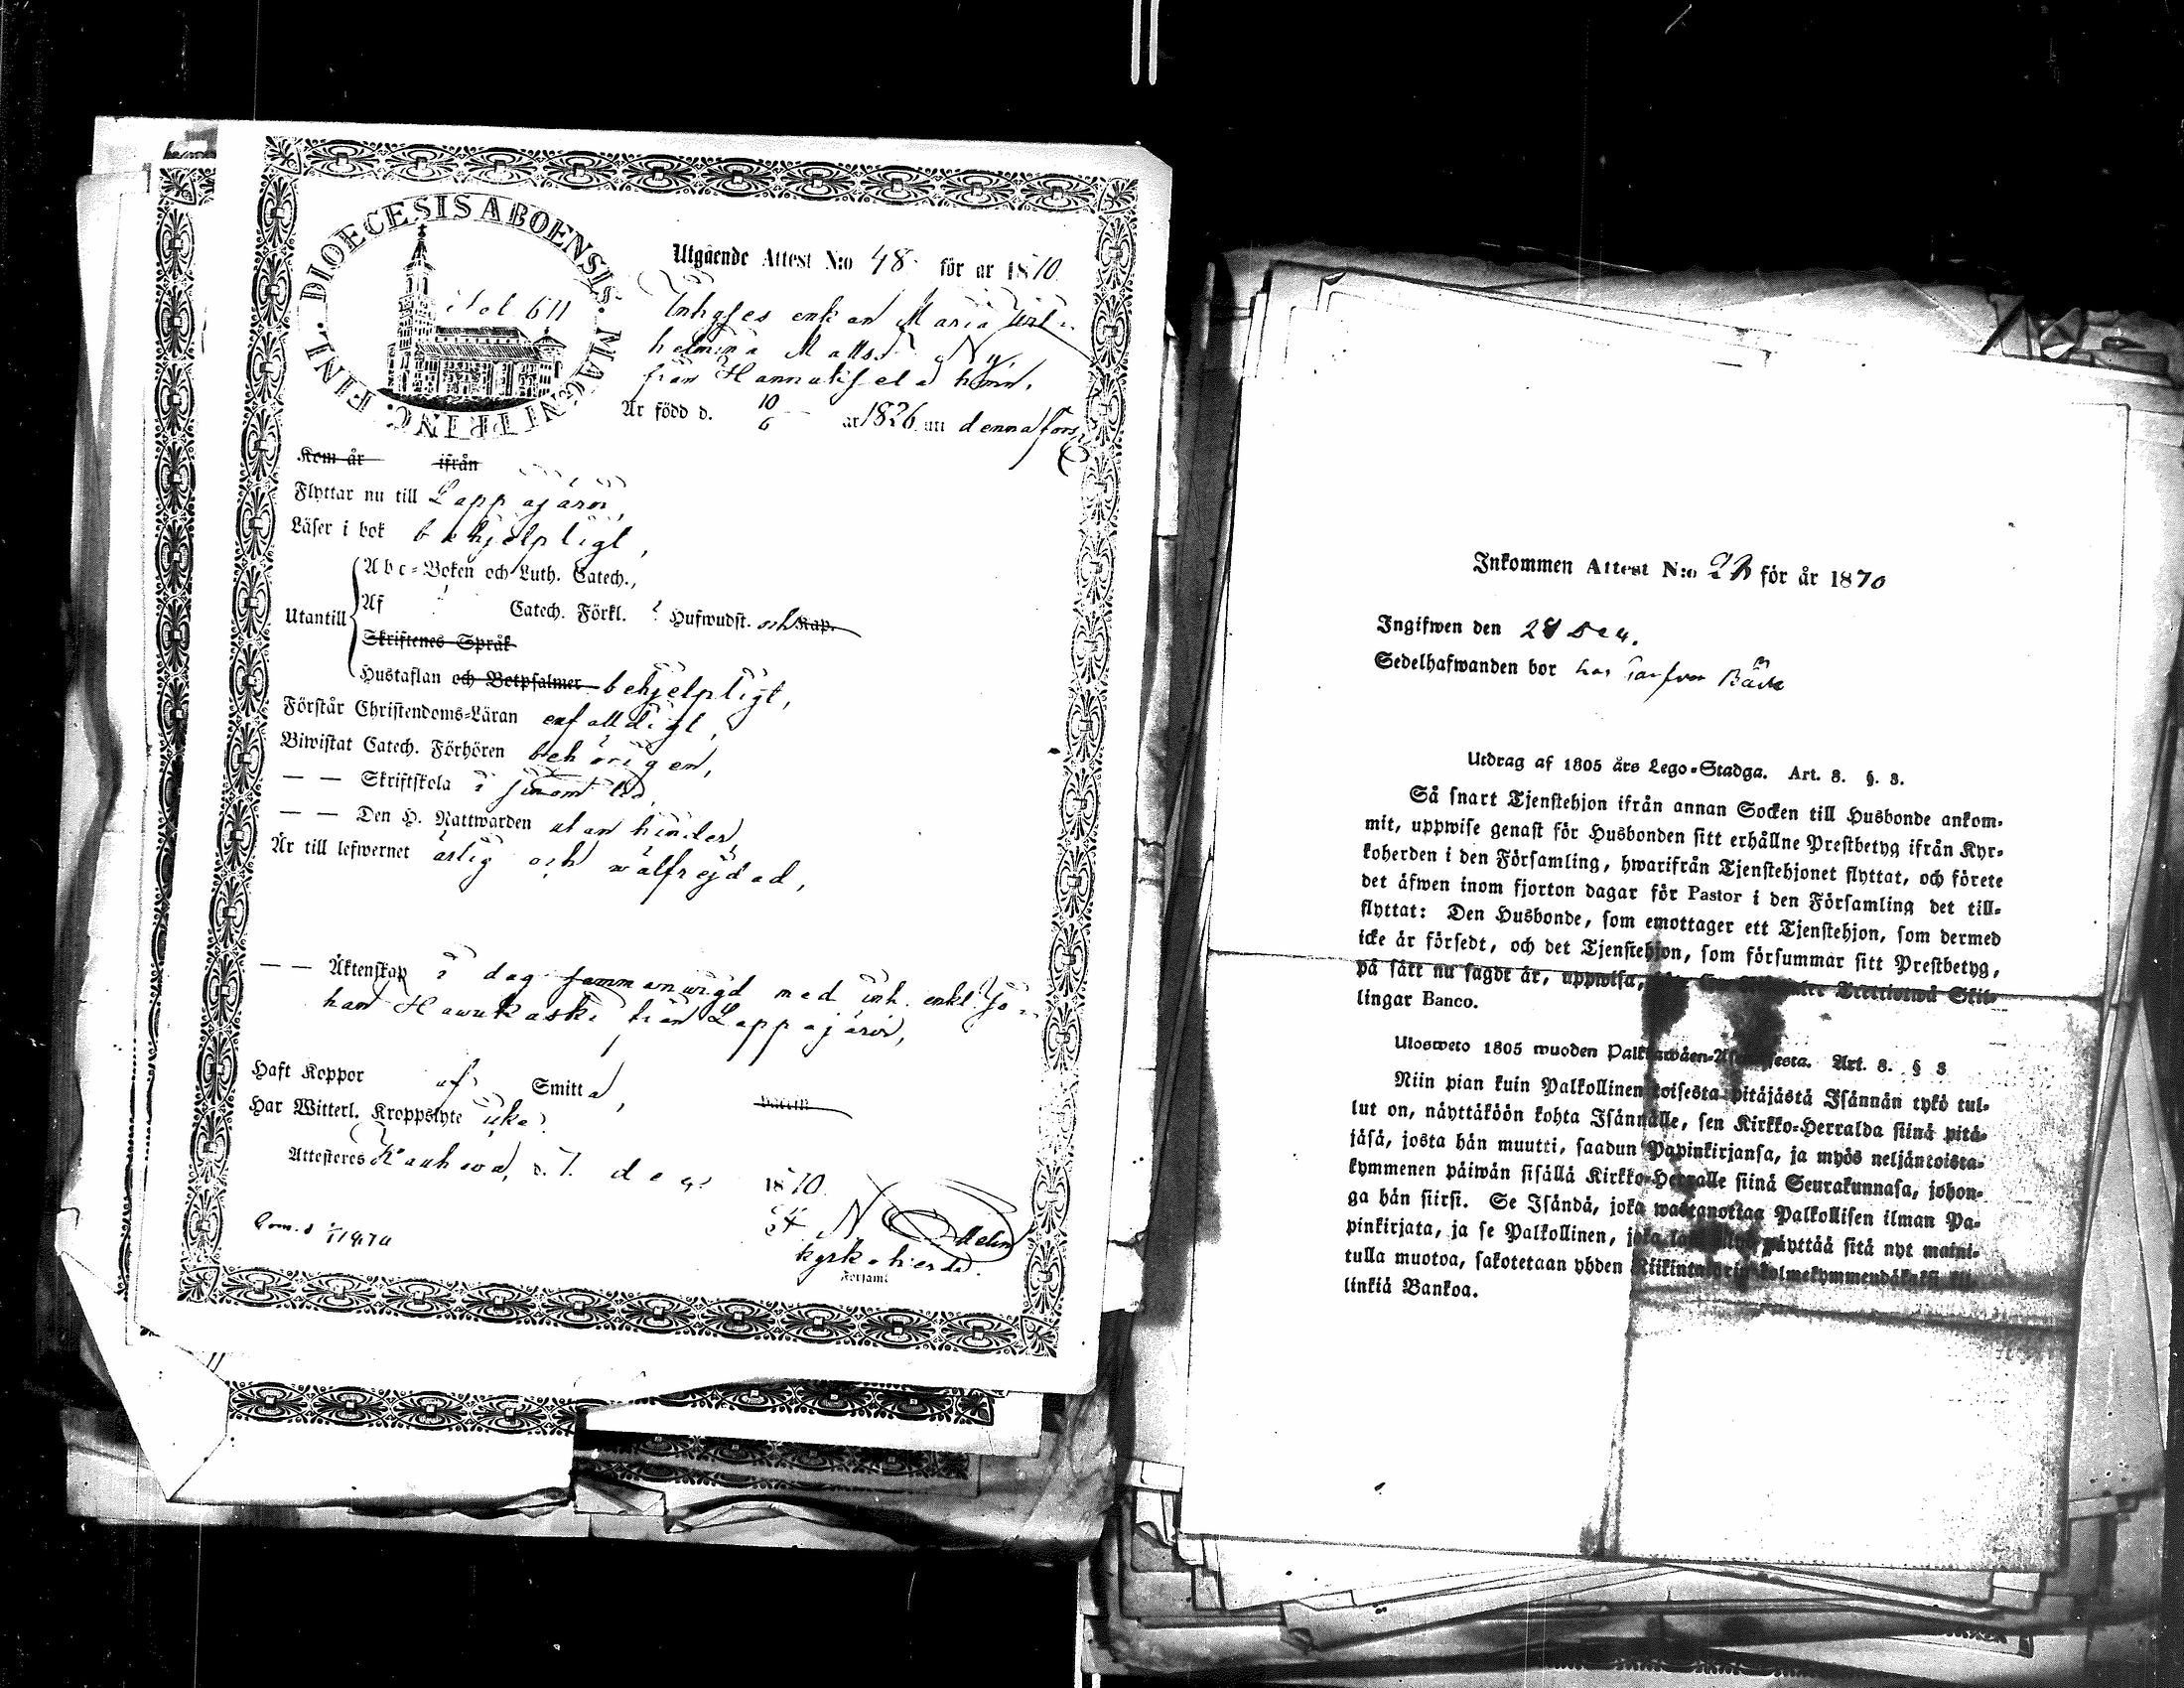 DIOECESIS ABOENSIS. MAGNI PRINC. FINL.
Utgående Attest N:o 48 för år 1870
Inhyses enkan Maria Wil-
helmina Mattsd Ny
från Hannuksela hemm.
Är född d. 10/6 år 1826 uti denna förs
Kom år ifrån
Flyttar nu till Lappajärvi,
Läser i bok behjelpligt,
Abc-Boken och Luth. Catech.,
Utantill Af Catech. Förkl. Hufwudst. och Kap.
Skriftenes Språk
Hustaflan och Botpsalmer behjelpligt,
Förstår Christendoms-Läran enfalldigt,
Biwistat Catech. Förhören behörigen,
— — Skriftskola i
— — Den H. Nattwarden utan hinder,
Är till lefwernet ärlig och wälfrejdad,
— — Äktenskap i dag sammanwigd med inh. enkl. Jo-
han Hawukaski från Lappajärvi,
Haft Koppor af Smitta,
Har Witterl. Kroppslyte icke.
Attesteres Kauhava, d. 7. dec. 1870.
N
Kyrkoherde.
Församl
Inkommen Attest N:o 22 för år 1870
Ingifwen den 28 Dec.
Sedelhafwanden bor hos
Utdrag af 1805 års Lego-Stadga. Art. 8. §. 3.
Så snart Tjenstehjon ifrån annan Socken till Husbonde ankom-
mit, uppwise genast för Husbonden sitt erhållne Prestbetyg ifrån Kyr-
koherden i den Församling, hwarifrån Tjenstehjonet flyttat, och förete
det äfwen inom fjorton dagar för Pastor i den Församling det till-
flyttat: Den Husbonde, som emottager ett Tjenstehjon, som dermed
icke är försedt, och det Tjenstehjon, som försummar sitt Prestbetyg,
på sätt nu sagdt är, uppwisa, Skil-
lingar Banco.
Uloswеto 1805 wuoden Art. 8. § 3
Niin pian kuin Palkollinen toisesta pitäjästä Isännän tykö tul-
lut on, näyttäköön kohta Isännälle, sen Kirkko-Herralda siinä pitä-
jäsä, josta hän muutti, saadun Papinkirjansa, ja myös neljäntoista-
kymmenen päiwän sisällä Kirkko-Herralle siinä Seurakunnasa, johon-
ga hän siirsi. Se Isändä, joka wastanottaa Palkollisen ilman Pa-
pinkirjata, ja se Palkollinen, joka näyttää sitä nyt maini-
tulla muotoa, sakotetaan yhden kolmekymmendäkaksi kil-
linkiä Bankoa.